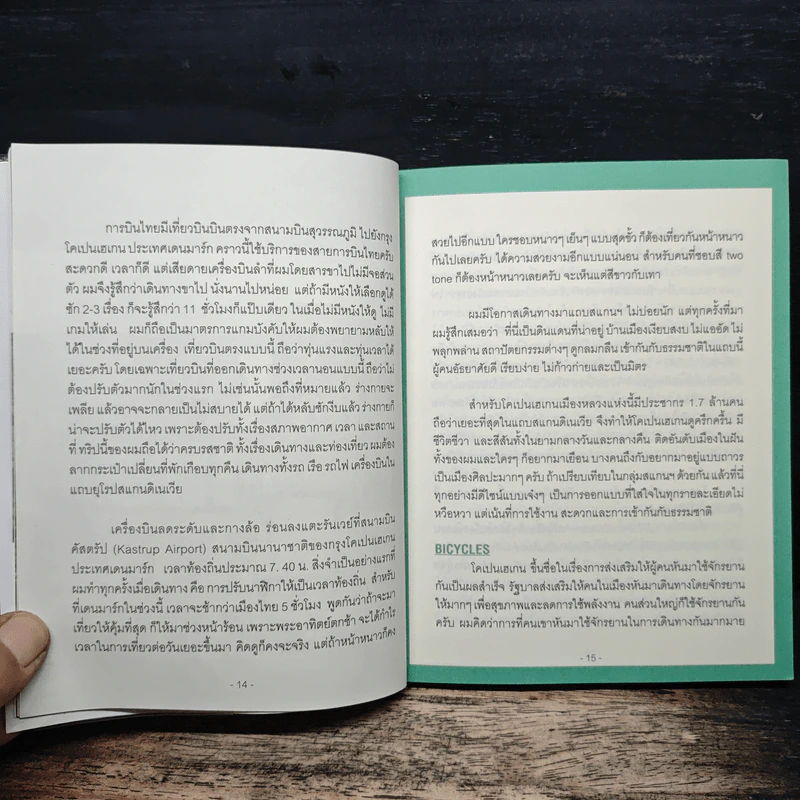 การบินไทยมีเที่ยวบินบินตรงจากสนามบินสุวรรณภูมิ ไปยังกรุง
โคเปนเฮเกน ประเทศเดนมาร์ก คราวนี้ใช้บริการของสายการบินไทยครับ
สะดวกดี เวลาก็ดี แต่เสียดายเครื่องบินลำที่ผมโดยสารขาไปไม่มีจอส่วน
ตัว ผมจึงรู้สึกว่าเดินทางขาไป นั่งนานไปหน่อย แต่ถ้ามีหนังให้เลือกดูได้
ซัก 2-3 เรื่อง ก็จะรู้สึกว่า 11 ชั่วโมงก็แป๊บเดียว ในเมื่อไม่มีหนังให้ดู ไม่มี
เกมให้เล่น ผมก็ถือเป็นมาตรการแกมบังคับให้ผมต้องพยายามหลับให้
ได้ในช่วงที่อยู่บนเครื่อง เที่ยวบินตรงแบบนี้ ถือว่าทุ่นแรงและทุ่นเวลาได้
เยอะครับ โดยเฉพาะเที่ยวบินที่ออกเดินทางช่วงเวลานอนแบบนี้ ถือว่าไม่
ต้องปรับตัวมากนักในช่วงแรก ไม่เช่นนั้นพอถึงที่หมายแล้ว ร่างกายจะ
เพลีย แล้วอาจจะกลายเป็นไม่สบายได้ แต่ถ้าได้หลับซักงีบแล้ว ร่างกายก็
น่าจะปรับตัวได้ไหว เพราะต้องปรับทั้งเรื่องสภาพอากาศ เวลา และสถาน
ที่ ทริปนี้ของผมถือได้ว่าครบรสชาติ ทั้งเรื่องเดินทางและท่องเที่ยว ผมต้อง
ลากกระเป๋าเปลี่ยนที่พักเกือบทุกคืน เดินทางทั้งรถ เรือ รถไฟ เครื่องบินใน
แถบยุโรปสแกนดิเนเวีย
เครื่องบินลดระดับและกางล้อ ร่อนลงแตะรันเวย์ที่สนามบิน
คัสตรัป (Kastrup Airport) สนามบินนานาชาติของกรุงโคเปนเฮเกน
ประเทศเดนมาร์ก เวลาท้องถิ่นประมาณ 7. 40 น. สิ่งจำเป็นอย่างแรกที่
ผมทำทุกครั้งเมื่อเดินทาง คือ การปรับนาฬิกาให้เป็นเวลาท้องถิ่น สำหรับ
ที่เดนมาร์กในช่วงนี้ เวลาจะช้ากว่าเมืองไทย 5 ชั่วโมง พูดกันว่าถ้าจะมา
เที่ยวให้คุ้มที่สุด ก็ให้มาช่วงหน้าร้อน เพราะพระอาทิตย์ตกช้า จะได้กำไร
เวลาในการเที่ยวต่อวันเยอะขึ้นมา คิดดูก็คงจะจริง แต่ถ้าหน้าหนาวก็คง
- 14 -
สวยไปอีกแบบ ใครชอบหนาวๆ เย็นๆ แบบสุดขั้ว ก็ต้องเที่ยวกันหน้าหนาว
กันไปเลยครับ ได้ความสวยงามอีกแบบแน่นอน สำหรับคนที่ชอบสี two
tone ก็ต้องหน้าหนาวเลยครับ จะเห็นแต่สีขาวกับเทา
ผมมีโอกาสเดินทางมาแถบสแกนฯ ไม่บ่อยนัก แต่ทุกครั้งที่มา
ผมรู้สึกเสมอว่า ที่นี่เป็นดินแดนที่น่าอยู่ บ้านเมืองเงียบสงบ ไม่แออัด ไม่
พลุกพล่าน สถาปัตยกรรมต่างๆ ดูกลมกลืน เข้ากันกับธรรมชาติในแถบนี้
ผู้คนอัธยาศัยดี เรียบง่าย ไม่ก้าวก่ายและเป็นมิตร
สำหรับโคเปนเฮเกนเมืองหลวงแห่งนี้มีประชากร 1.7 ล้านคน
ถือว่าเยอะที่สุดในแถบสแกนดิเนเวีย จึงทำให้โคเปนเฮเกนดูครึกครื้น มี
ชีวิตชีวา และสีสันทั้งในยามกลางวันและกลางคืน ติดอันดับเมืองในฝัน
ทั้งของผมและใครๆ ก็อยากมาเยือน บางคนถึงกับอยากมาอยู่แบบถาวร
เป็นเมืองศิลปะมากๆ ครับ ถ้าเปรียบเทียบในกลุ่มสแกนฯ ด้วยกัน แล้วที่นี่
ทุกอย่างมีดีไซน์แบบเจ๋งๆ เป็นการออกแบบที่ใส่ใจในทุกรายละเอียดไม่
หวือหวา แต่เน้นที่การใช้งาน สะดวกและการเข้ากันกับธรรมชาติ
BICYCLES
โคเปนเฮเกน ขึ้นชื่อในเรื่องการส่งเสริมให้ผู้คนหันมาใช้จักรยาน
กันเป็นผลสำเร็จ รัฐบาลส่งเสริมให้คนในเมืองหันมาเดินทางโดยจักรยาน
ให้มากๆ เพื่อสุขภาพและลดการใช้พลังงาน คนส่วนใหญ่ก็ใช้จักรยานกัน
ครับ ผมคิดว่าการที่คนเขาหันมาใช้จักรยานในการเดินทางกันมากมาย
- 15 -